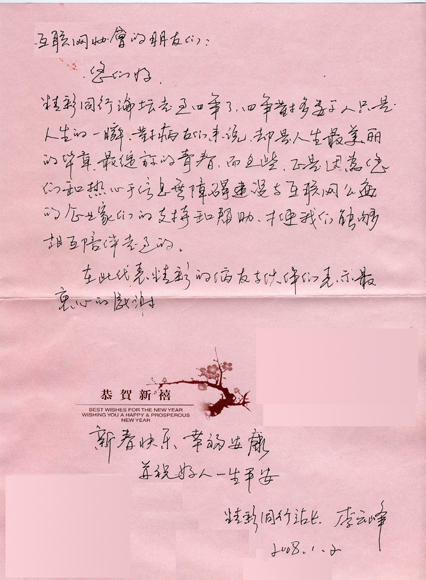 互联网协會的朋友们:
您们好.
精彩同行论坛走过四年了,四年对多数人只是
人生的一瞬,对病友们来说,却是人生最美丽
的年真,最绽放的青春,而这些,正是因为您
们和热心于信息无障碍建设与互联网公益
的企业家们的支持和帮助,才使我们能够
相互陪伴走过的.
在此代表精彩的病友与伙伴们表示最
衷心的感谢
恭賀新禧
BEST WISHES FOR THE NEW YEAR
WISHING YOU A HAPPY & PROSPEROUS
NEW YEAR
新春快乐、幸福安康
并祝好人一生平安
精彩同行站长 李云峰
2008.1.2